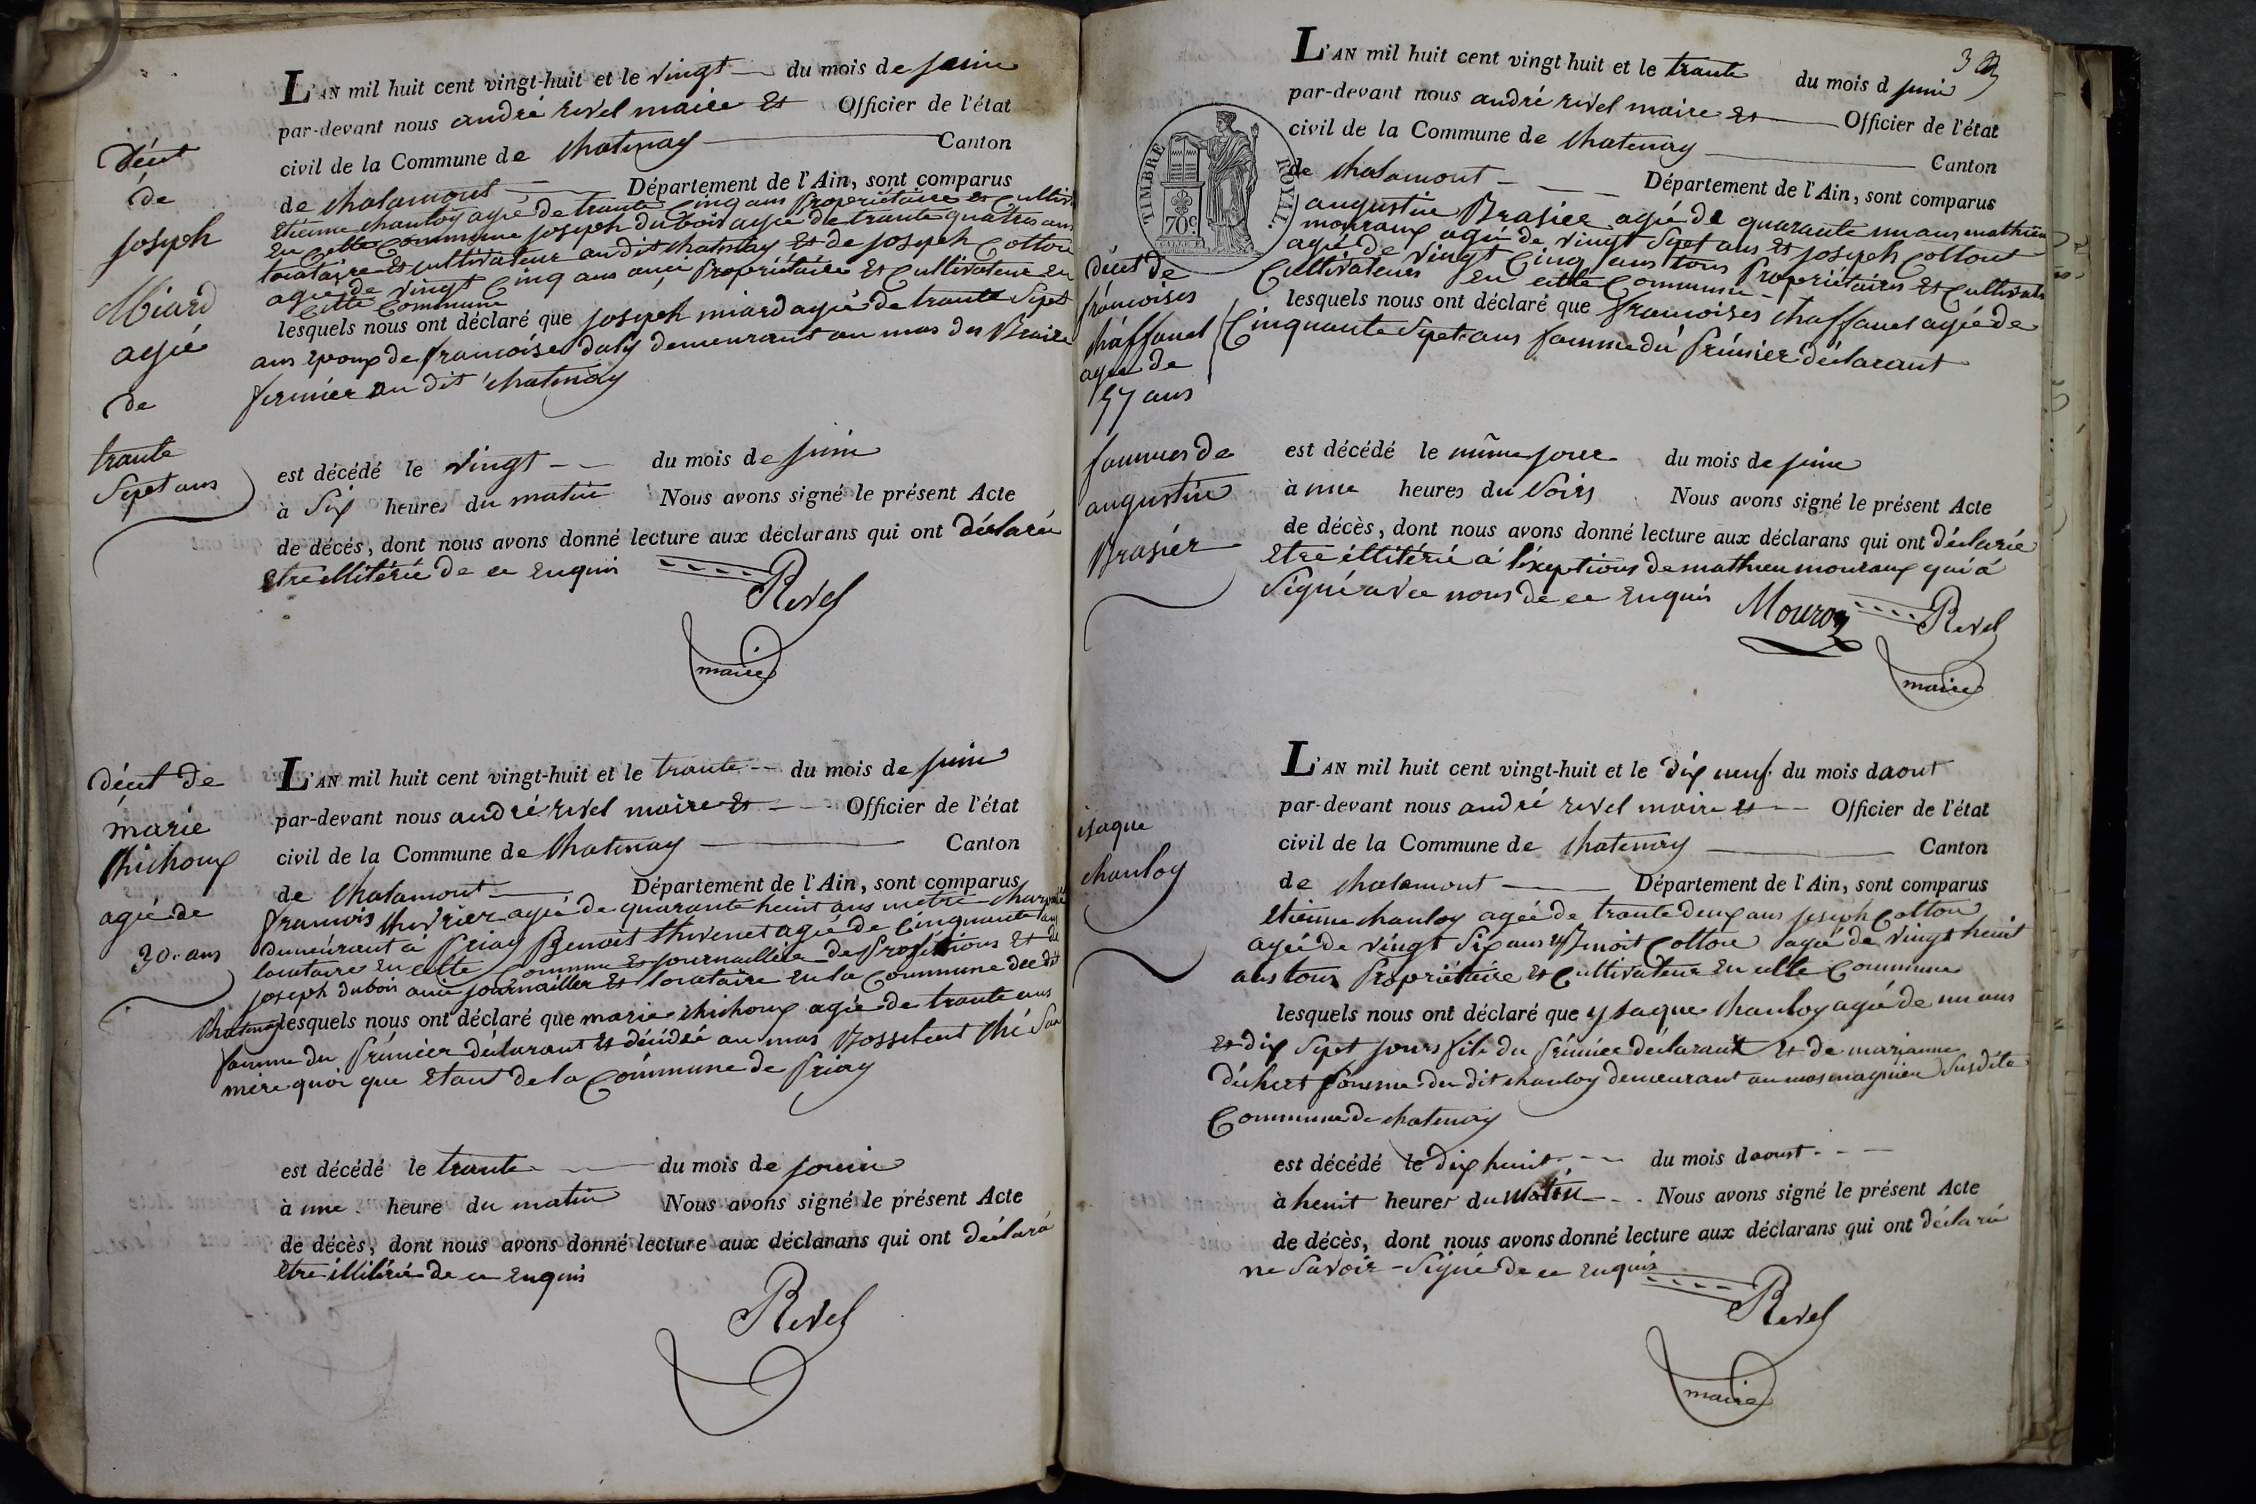 décét
de
joseph
Miard
agié
de
trante
Sepet ans
L'AN mil huit cent vingt-huit et le vingt du mois de juin
par-devant nous andré revel maire et Officier de l'état
civil de la Commune de Chatenay Canton
de Chalamont Département de l'Ain, sont comparus
Etienne chanloy agié de trante Cinq ans Propriétaire et Cultiv
en cette Commune joseph dubois agié de trante quatres ans
locataire et cultivateur audit Chatenay et de joseph Cotton
agié de vingt Cinq ans aussi Propriétaire et Cultivateur en
Cette Commune
lesquels nous ont déclaré que joseph miard agié de trante Sepet
ans epoux de francoise daly demeurant au mas des
fermier au dit chatenay
est décédé le vingt du mois de juin
à Six heures du matin Nous avons signé le présent Acte
de décés, dont nous avons donné lecture aux déclarans qui ont déclaré
etre illitérié de ce Enquis
Revel
maire
décét de
marie
Chichoux
agié de
30 ans
L'AN mil huit cent vingt-huit et le trante du mois de juin
par-devant nous andré revel maire et Officier de l'état
civil de la Commune de Chatenay Canton
de Chalamont Département de l'Ain, sont comparus
francois thevrier agié de quarante heuit ans metre
demeurant à Priay Benoit thevenet agié de Cinquante ans
locataire en cette Commune et journaillier de Profetions et de
joseph dubois aussi journaillier et locataire en la Commune de dit
Chatenay lesquels nous ont déclaré que marie chichoux agié de trante ans
famme du Prémier déclarant et décédée au mas chés Sa
mere quoi que Etant de la Commune de Priay
est décédé le trante du mois de jouin
à une heure du matin Nous avons signé le présent Acte
de décès, dont nous avons donné lecture aux déclarans qui ont déclaré
etre illitérié de ce Enquis
Revel
TIMBRE ROYAL
70c.
décét de
francoises
chaffanel
agié de
57 ans
fammes de
augustin
Brasier
L'AN mil huit cent vingt huit et le trante du mois d juin
par-devant nous andré revel maire et Officier de l'état
civil de la Commune de Chatenay Canton
de Chalamont Département de l'Ain, sont comparus
augustin Brasier agié de quarante un ans mathieu
mouraux agié de vingt Sepet ans et joseph Cottont
agié de vingt Cinq ans tous Propriétaires et Cultivat
Cultivateurs en cette Commune
lesquels nous ont déclaré que francoises Chaffanel agiée de
Cinquante Sepet ans famme du Prémier déclarant
est décédé le même jour du mois de juin
à une heures du Soirs Nous avons signé le présent Acte
de décès, dont nous avons donné lecture aux déclarans qui ont déclarée
etre illitérié à l'exeptions de mathieu mouraux qui à
Signé avec nous de ce Enquis
Mouroz
Revel
maire
isaque
chanloy
L'AN mil huit cent vingt-huit et le dix neuf du mois daout
par-devant nous andré revel maire et Officier de l'état
civil de la Commune de Chatenay Canton
de Chalamont Département de l'Ain, sont comparus
Etienne chanloy agée de trante deux ans joseph Cotton
agié de vingt Six ans et Benoit Cotton agié de vingt heuit
ans tous Propriétaire et Cultivateur en cette Commune
lesquels nous ont déclaré que ysaque Chanloy agié de un ans
et dix Sepet jours fils du Prémier déclarant et de marianne
déchert famme du dit chanloy demeurant au mas magnien Susdite
Commune de chatenay
est décédé le dix heuit du mois daoust
à heuit heures du Matin Nous avons signé le présent Acte
de décès, dont nous avons donné lecture aux déclarans qui ont déclaré
ne Savoir Signé de ce Enquis
Revel
maire